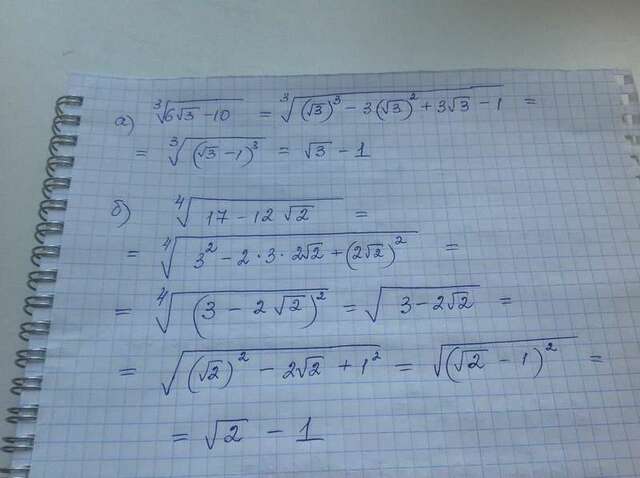 а) ∛(6√3 - 10) = ∛((√3)³ - 3(√3)² + 3√3 - 1) =
= ∛((√3 - 1)³) = √3 - 1
б) ∜(17 - 12√2) =
= ∜(3² - 2·3·2√2 + (2√2)²) =
= ∜((3 - 2√2)²) = √(3 - 2√2) =
= √((√2)² - 2√2 + 1²) = √((√2 - 1)²) =
= √2 - 1